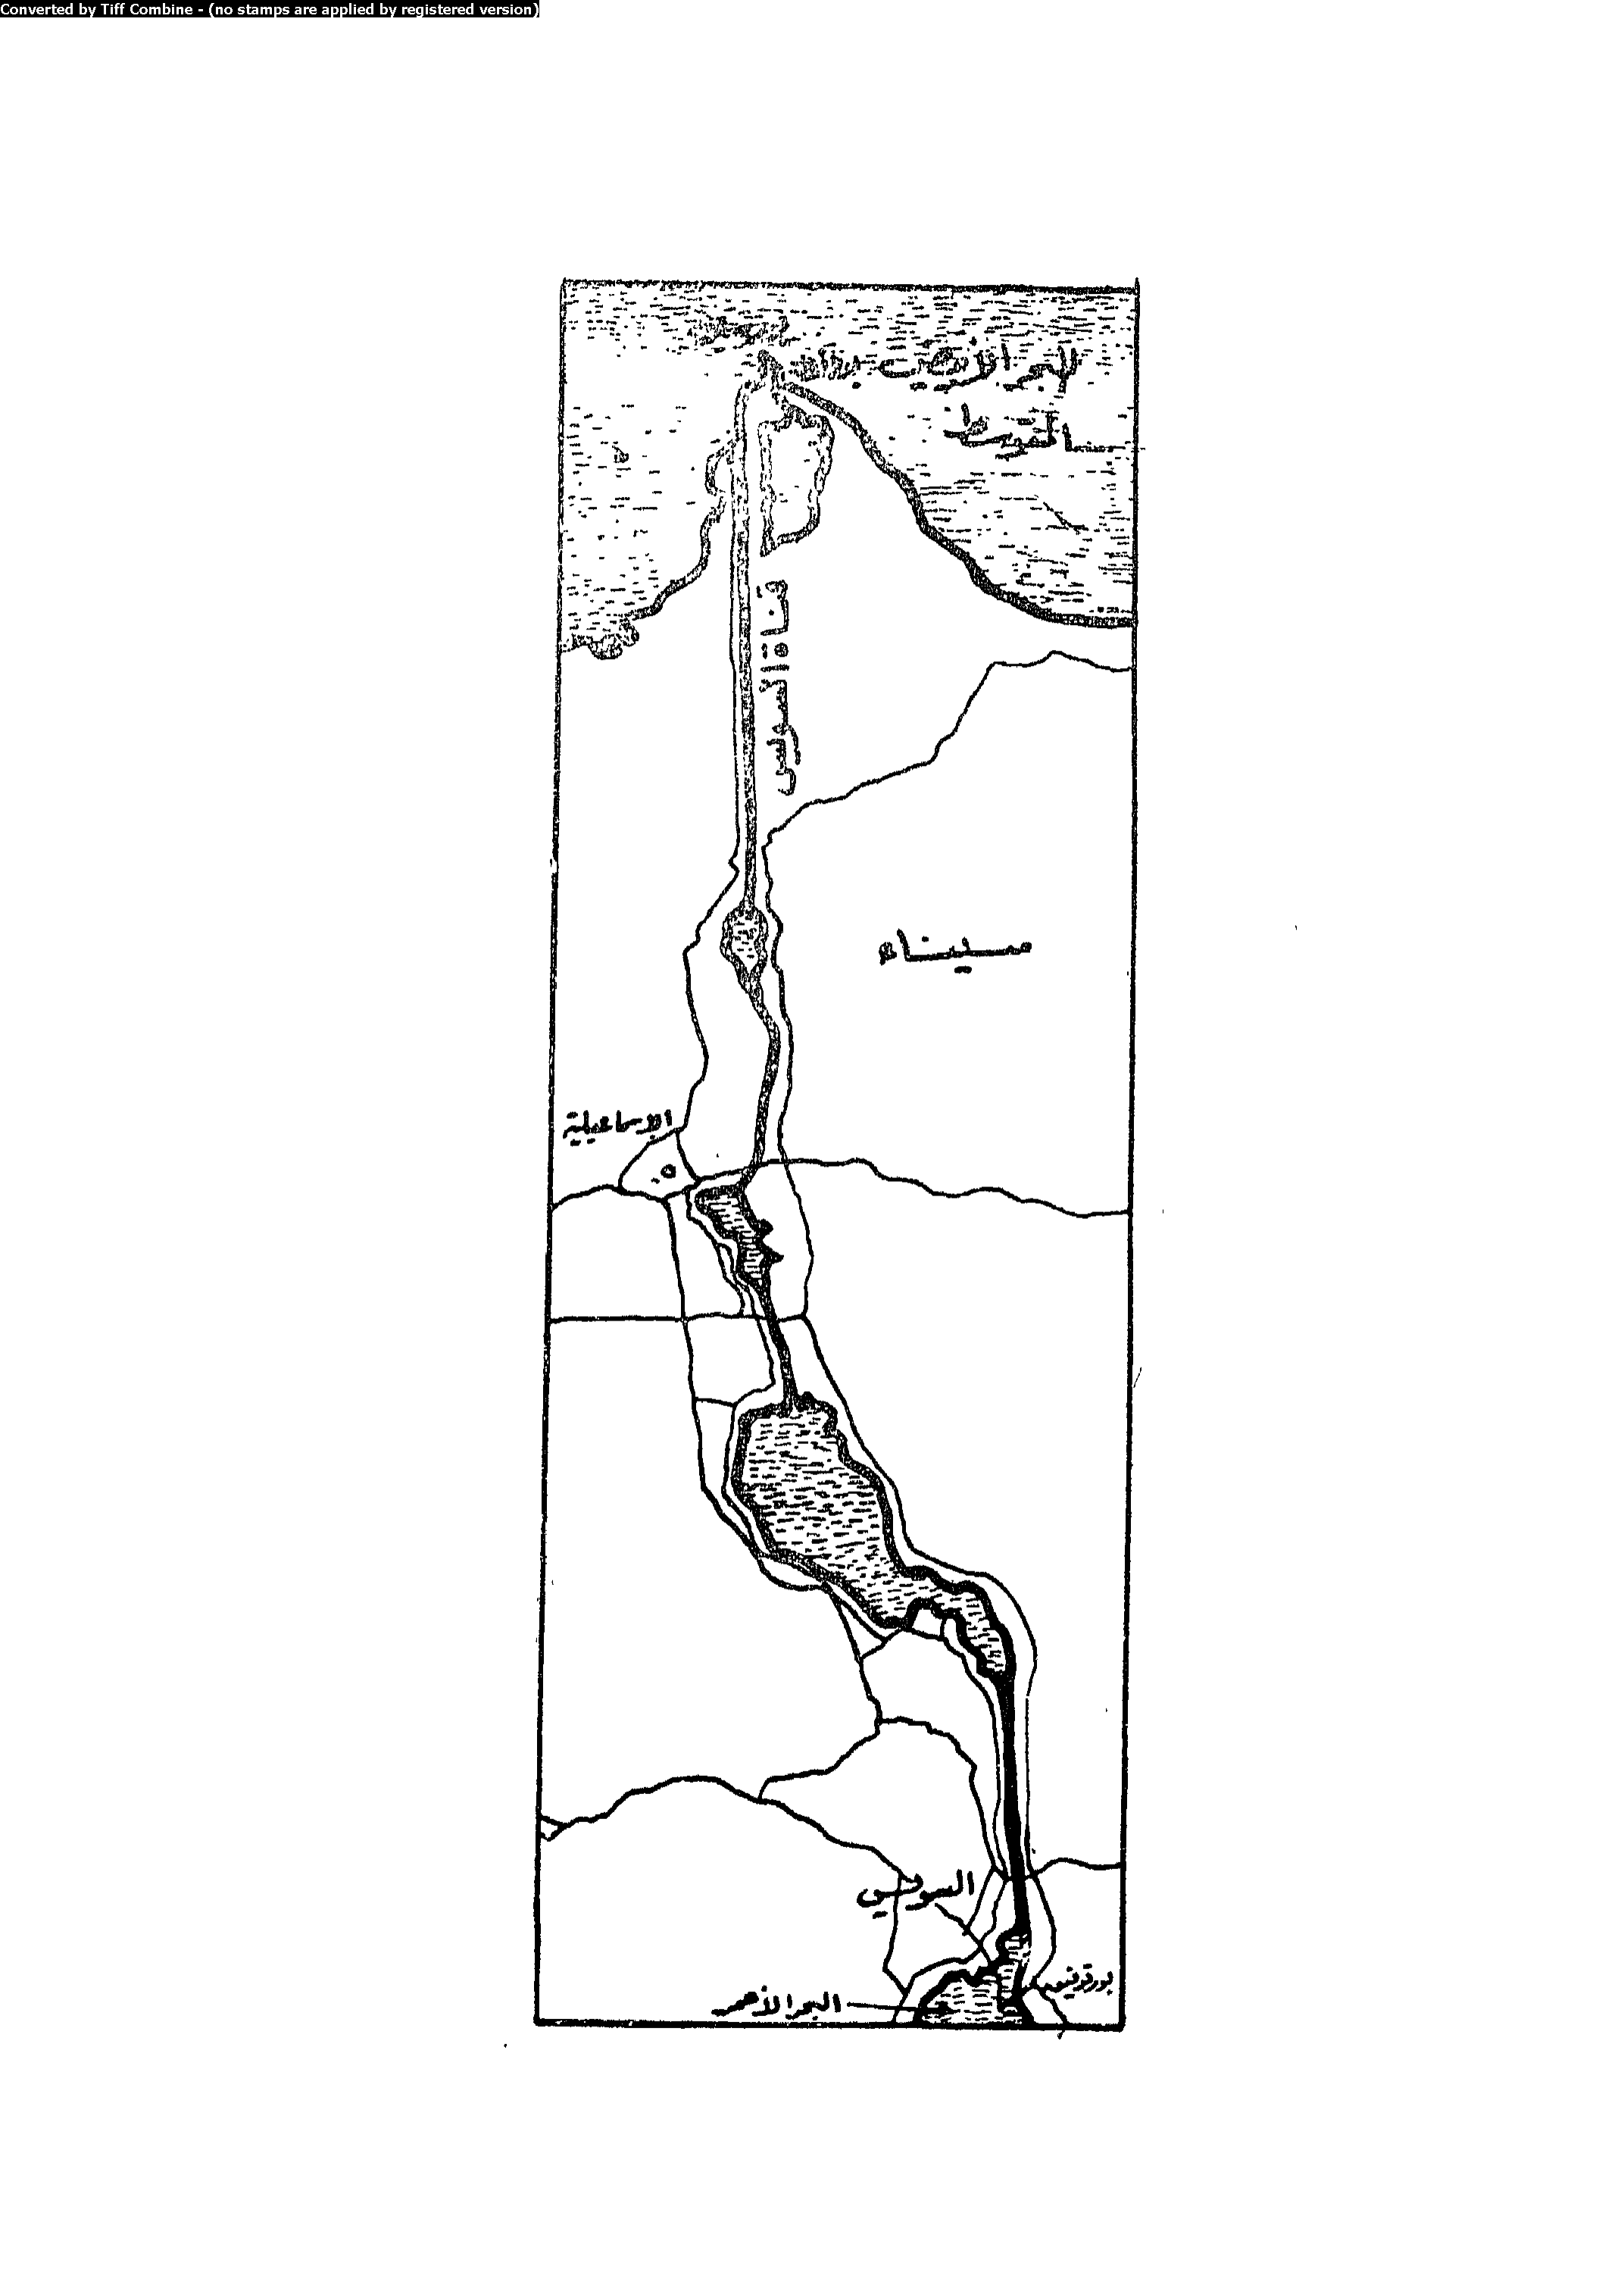 Converted by Tiff Combine - (no stamps are applied by registered version)
البحر الأبيض
المتوسط
قناة السويس
سيناء
الاسماعيلية
السويس
بورتوفيق
البحر الأحمر